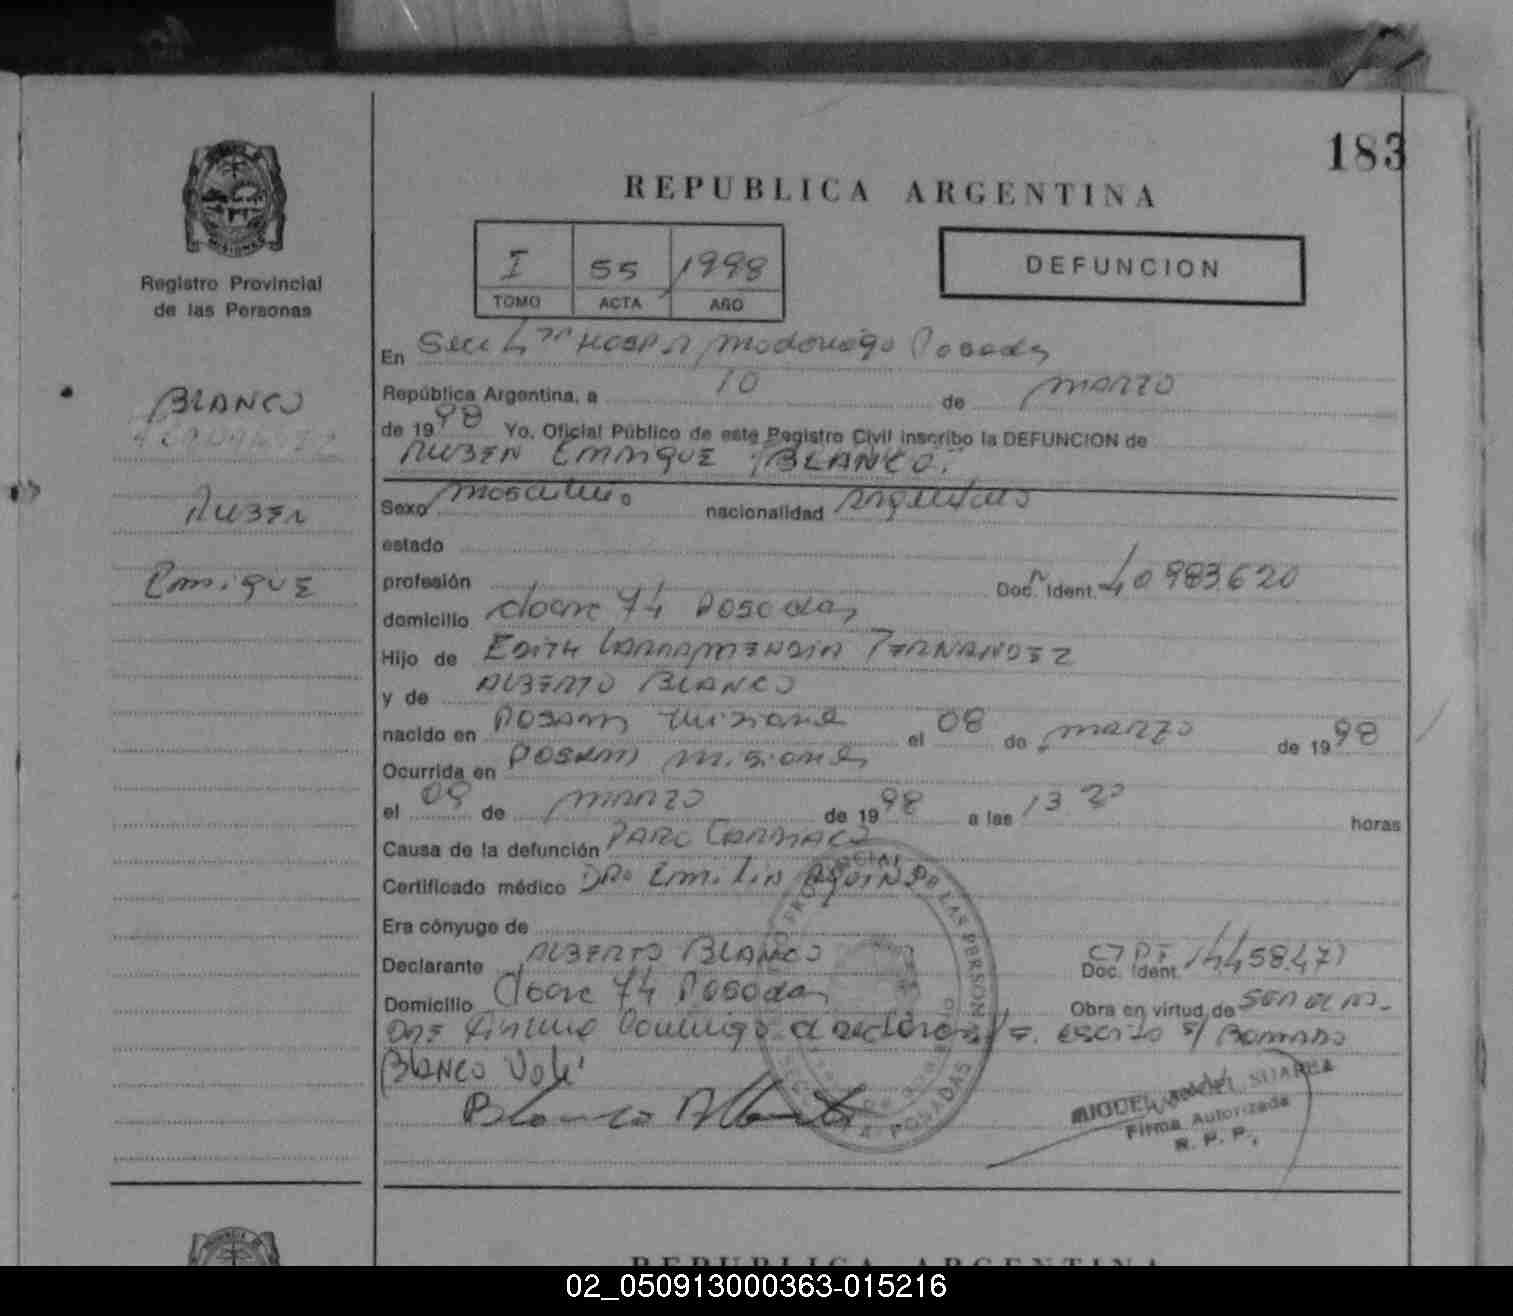 183
REPUBLICA ARGENTINA
MISIONES
Registro Provincial
de las Personas
I 55 1998
TOMO ACTA AÑO
DEFUNCION
En Secc Hosp Madariaga Posadas
República Argentina, a 10 de marzo
de 1998 Yo, Oficial Público de este Registro Civil inscribo la DEFUNCION de
RUBEN ENRIQUE BLANCO.
BLANCO
RUBEN
Enrique
Sexo masculino nacionalidad argentino
estado
profesión Doc. Ident. 40983620
domicilio 74 Posadas
Hijo de EDITH LARRAMENDIA FERNANDEZ
y de ALBERTO BLANCO
nacido en Posadas Misiones el 08 de marzo de 1998
Ocurrida en Posadas Misiones
el 09 de marzo de 1998 a las 13 20 horas
Causa de la defunción PARO CARDIACO
Certificado médico DRA Emilia
Era cónyuge de
Declarante ALBERTO BLANCO Doc. Ident.
Domicilio 74 Posadas Obra en virtud de
escrito s/ Borrado
BLANCO Vale
Blanco Alberto
POSADAS
MIGUEL SUAREZ
Firma Autorizada
R. P. P.
REPUBLICA ARGENTINA
02_050913000363-015216